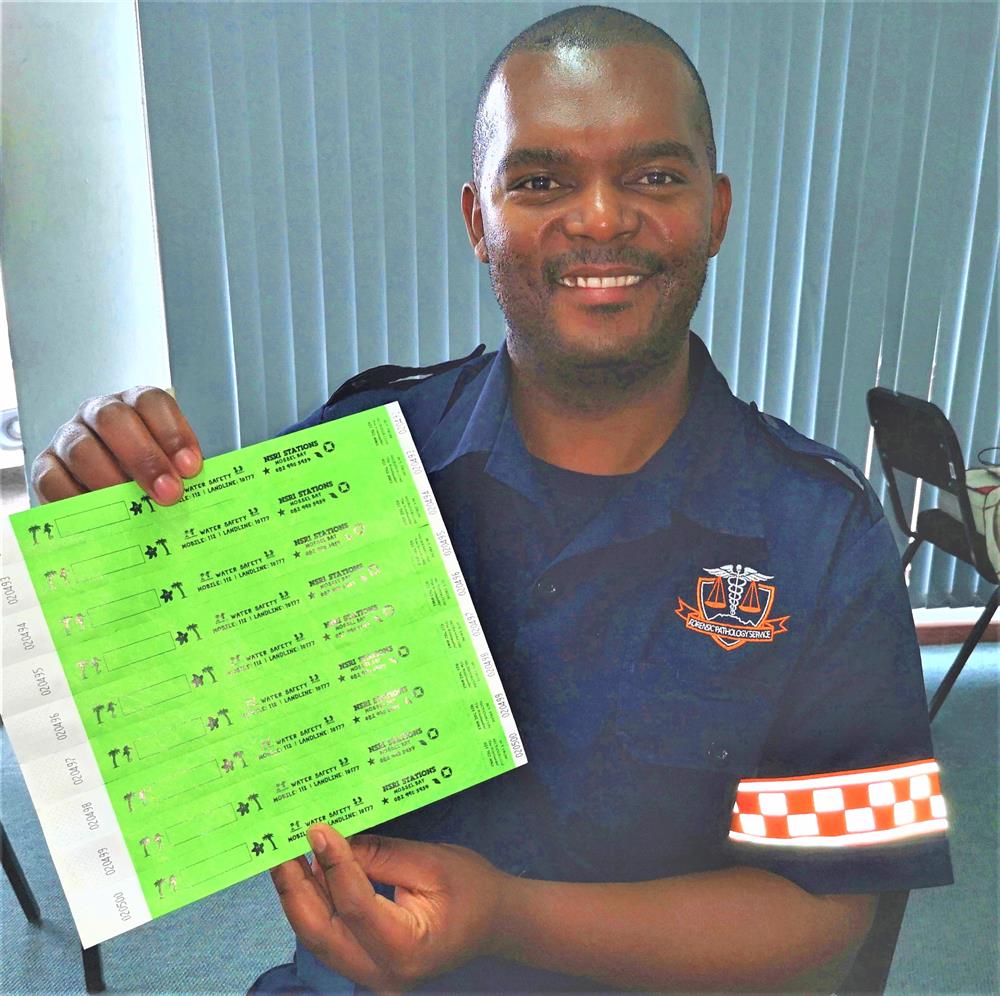 WATER SAFETY
MOBILE: 112 | LANDLINE: 10177
NSRI STATIONS
MOSSEL BAY
082 990 5954
WATER SAFETY
MOBILE: 112 | LANDLINE: 10177
NSRI STATIONS
MOSSEL BAY
082 990 5954
WATER SAFETY
MOBILE: 112 | LANDLINE: 10177
NSRI STATIONS
MOSSEL BAY
082 990 5954
WATER SAFETY
MOBILE: 112 | LANDLINE: 10177
NSRI STATIONS
MOSSEL BAY
082 990 5954
WATER SAFETY
MOBILE: 112 | LANDLINE: 10177
NSRI STATIONS
MOSSEL BAY
082 990 5954
WATER SAFETY
MOBILE: 112 | LANDLINE: 10177
NSRI STATIONS
MOSSEL BAY
082 990 5954
WATER SAFETY
MOBILE: 112 | LANDLINE: 10177
NSRI STATIONS
MOSSEL BAY
082 990 5954
WATER SAFETY
MOBILE: 112 | LANDLINE: 10177
NSRI STATIONS
MOSSEL BAY
082 990 5954
WATER SAFETY
MOBILE: 112 | LANDLINE: 10177
NSRI STATIONS
MOSSEL BAY
082 990 5954
020493
020494
020495
020496
020497
020498
020499
020500
020493
020494
020495
020496
020499
020500
FORENSIC PATHOLOGY SERVICE